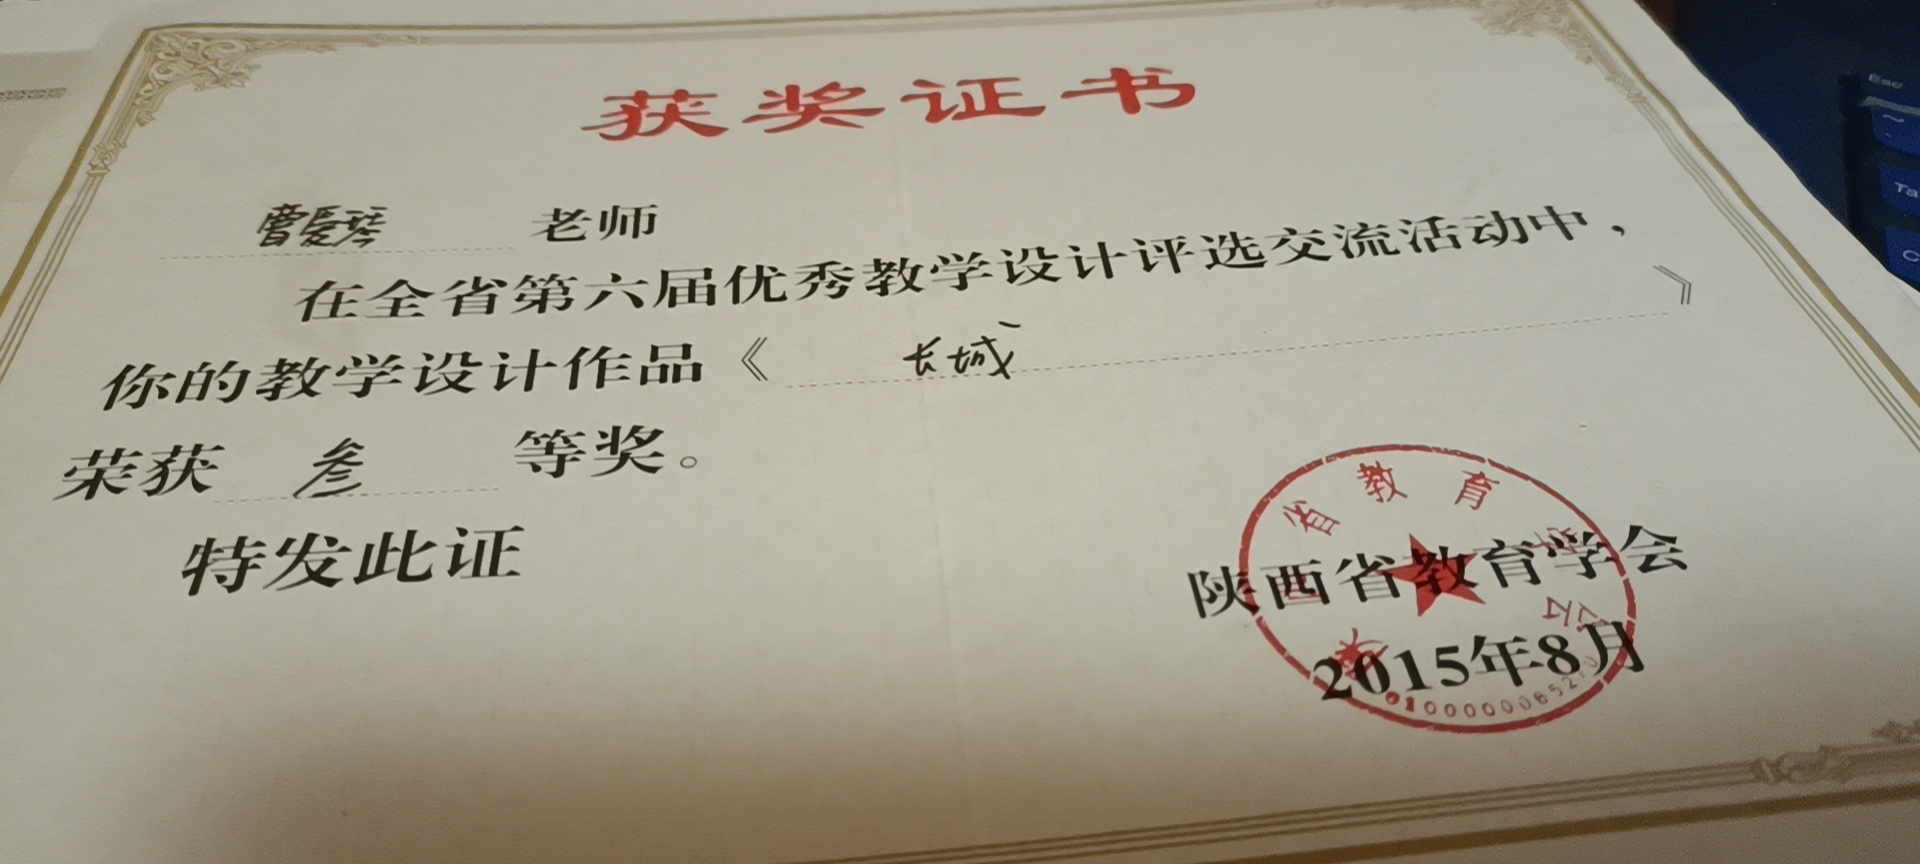 获奖证书
曹爱琴 老师
在全省第六届优秀教学设计评选交流活动中，
你的教学设计作品《 长城 》
荣获 叁 等奖。
特发此证
陕西省教育学会
2015年8月
省教育学会
Esc
~
Ta
C